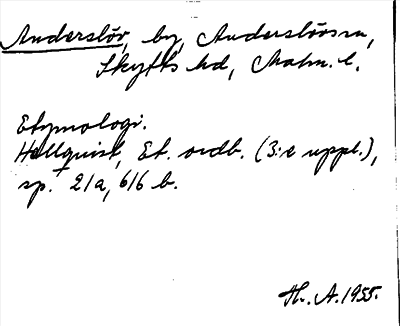 Anderslöv, by, Anderslövs sn,
Skytts hd, Malm. l.
Etymologi.
Hellquist, Et. ordb. (3:e uppl.),
sp. 21a, 616 b.
Hr. A. 1955.